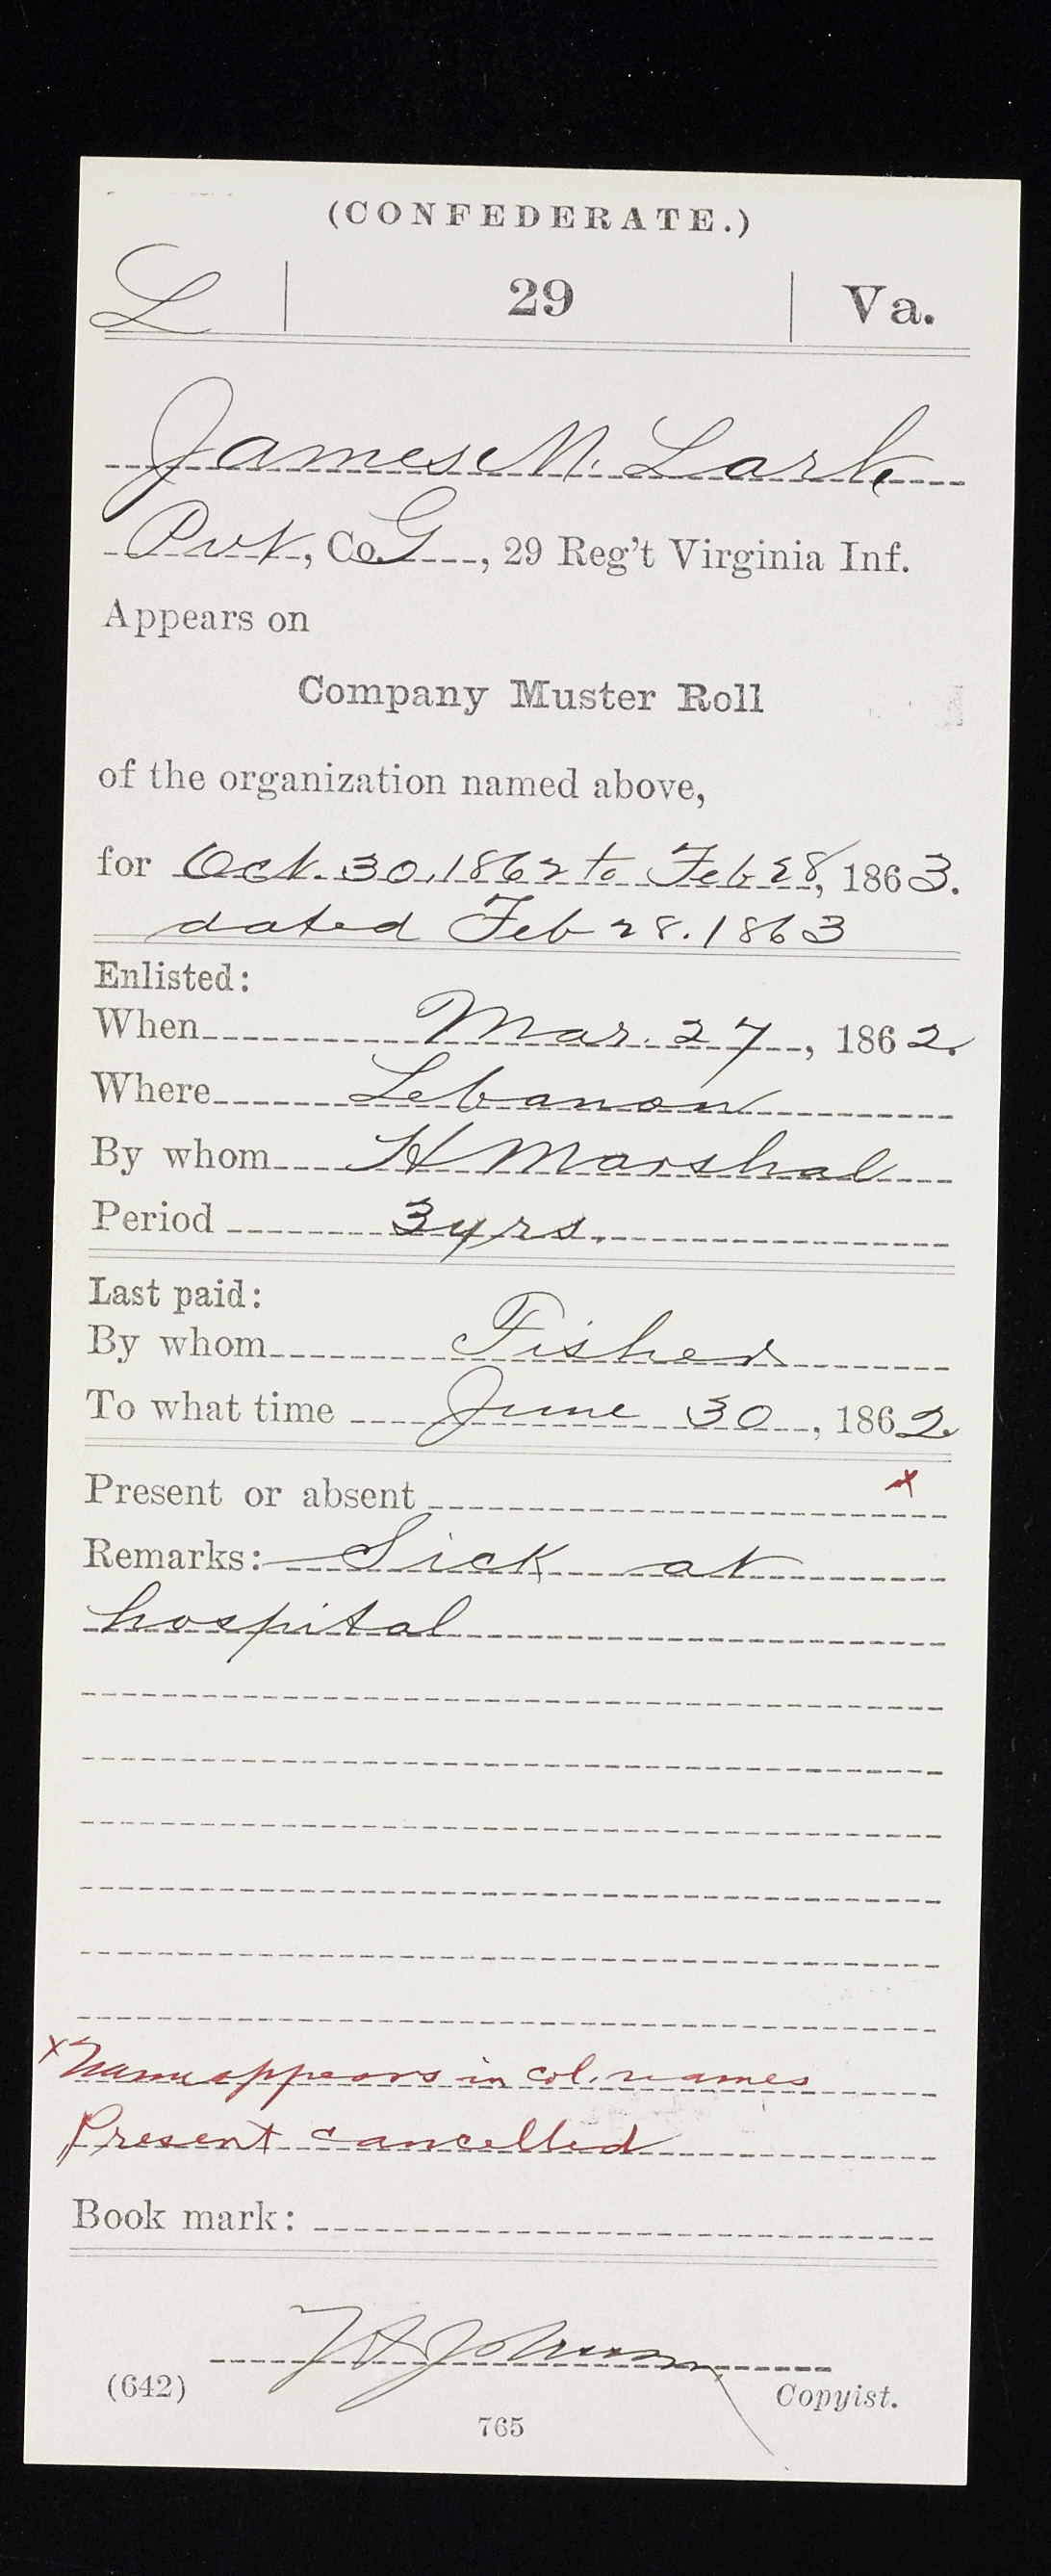 (CONFEDERATE.)
L | 29 | Va.
James M. Lark
Pvt, Co. G, 29 Reg't Virginia Inf.
Appears on
Company Muster Roll
of the organization named above,
for Oct. 30, 1862 to Feb 28, 1863.
dated Feb 28. 1863
Enlisted:
When Mar. 27, 1862.
Where Lebanon
By whom H Marshal
Period 3 yrs.
Last paid:
By whom Fisher
To what time June 30, 1862
Present or absent x
Remarks: Sick at
hospital
x Name appears in col. names
Present cancelled
Book mark:
Johnson
(642) Copyist.
765